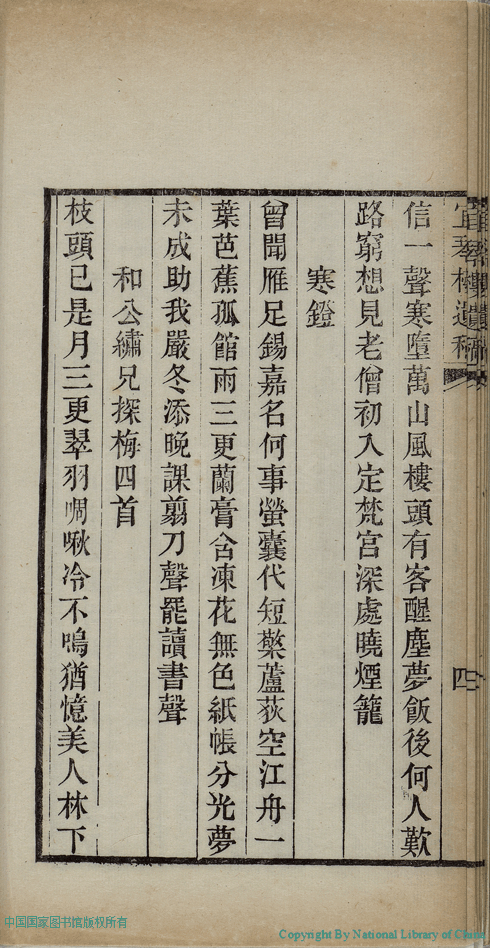 宜琴樓遺稿
四
信一聲寒墮萬山風樓頭有客醒塵夢飯後何人歎
路窮想見老僧初入定梵宮深處曉煙籠
寒鐙
曾聞雁足錫嘉名何事螢囊代短檠蘆荻空江舟一
葉芭蕉孤館雨三更蘭膏含凍花無色紙帳分光夢
未成助我嚴冬添晚課翦刀聲罷讀書聲
和公繡兄探梅四首
枝頭已是月三更翠羽啁啾冷不鳴猶憶美人林下
中国国家图书馆版权所有
Copyright By National Library of China